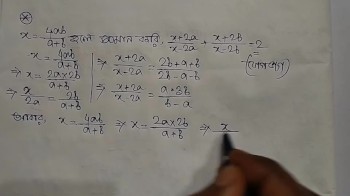 x = 4ab/a+b হলে প্রমাণ করি, x+2a/x-2a + x+2b/x-2b = 2
x = 4ab/a+b
⇒ x = 2a×2b/a+b
⇒ x/2a = 2b/a+b
⇒ x+2a/x-2a = 2b+a+b/2b-a-b
⇒ x+2a/x-2a = a+3b/b-a
আবার, x = 4ab/a+b ⇒ x = 2a×2b/a+b ⇒ x